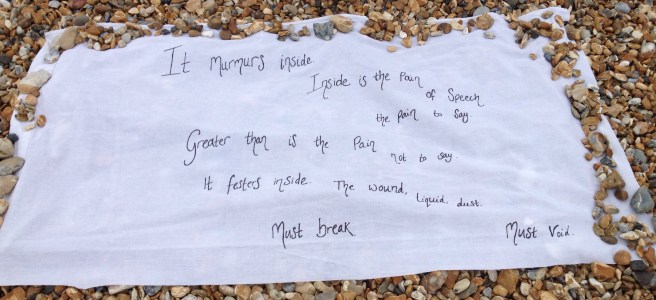 It murmurs inside.
Inside is the Pain
of Speech
the pain to say.
Greater than is the Pain
not to say.
It festers inside. The wound, liquid, dust.
Must break
Must void.